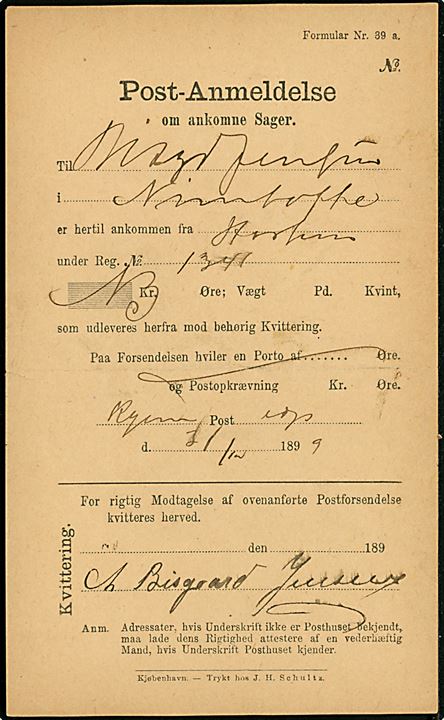 Formular Nr. 39 a.
№.
Post-Anmeldelse
om ankomne Sager.
Til
i
er hertil ankommen fra
under Reg. №. 1341
Kr. Øre; Vægt Pd. Kvint,
som udleveres herfra mod behørig Kvittering.
Paa Forsendelsen hviler en Porto af....... Øre.
og Postopkrævning Kr. Øre.
Post exp
d. /12 1899
Kvittering.
For rigtig Modtagelse af ovenanførte Postforsendelse
kvitteres herved.
den 189
A Bisgaard Jensen
Anm. Adressater, hvis Underskrift ikke er Posthuset bekjendt,
maa lade dens Rigtighed attestere af en vederhæftig
Mand, hvis Underskrift Posthuset kjender.
Kjøbenhavn. — Trykt hos J. H. Schultz.